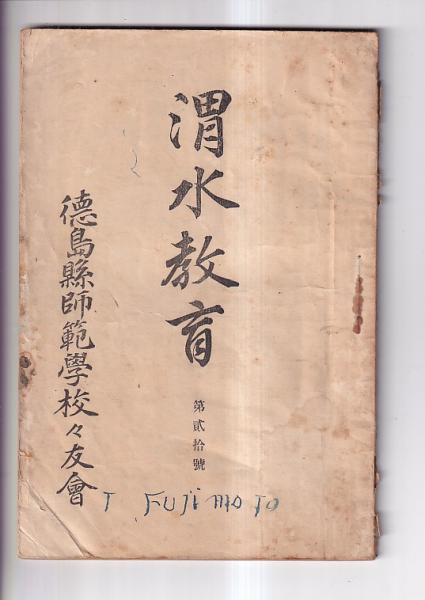 渭水教育
第貳拾號
德島縣師範學校々友會
T FUJIMOTO